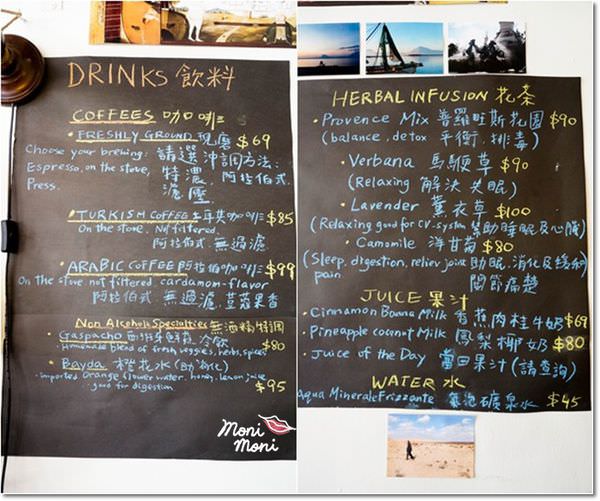 DRINKS 飲料
COFFEES 咖啡
• FRESHLY GROUND 現磨 $69
Choose your brewing: 請選沖調方法:
Espresso, on the stove, 特濃, 阿拉伯式,
Press. 濾壓
• TURKISH COFFEE 土耳其咖啡 $85
On the stove. Not filtered.
阿拉伯式 無過濾
• ARABIC COFFEE 阿拉伯咖啡 $99
On the stove not filtered. cardamon-flavor
阿拉伯式 無過濾 荳蔻果香
Non Alcoholic Specialties 無酒精特調
• Gaspacho 西班牙鮮蔬冷飲 $80
Homemade blend of fresh veggies, herbs, spices
• Bayda 橙花水 (助消化)
- imported Orange flower water, honey, lemon juice
good for digestion $95
Moni
Moni
HERBAL INFUSION 花茶
• Provence Mix 普羅旺斯花園 $90
(balance, detox 平衡, 排毒)
• Verbana 馬鞭草 $90
(Relaxing 解決失眠)
• Lavender 薰衣草 $100
(Relaxing good for CV-system 幫助睡眠及心臟)
• Camomile 洋甘菊 $80
(Sleep, digestion, reliev joint 助眠, 消化及緩和
pain 關節痛楚
JUICE 果汁
• Cinnamon Banana Milk 香蕉肉桂牛奶 $69
• Pineapple coconut Milk 鳳梨椰奶 $80
• Juice of the Day 當日果汁 (請查詢)
WATER 水
Aqua Minerale Frizzante 氣泡礦泉水 $45